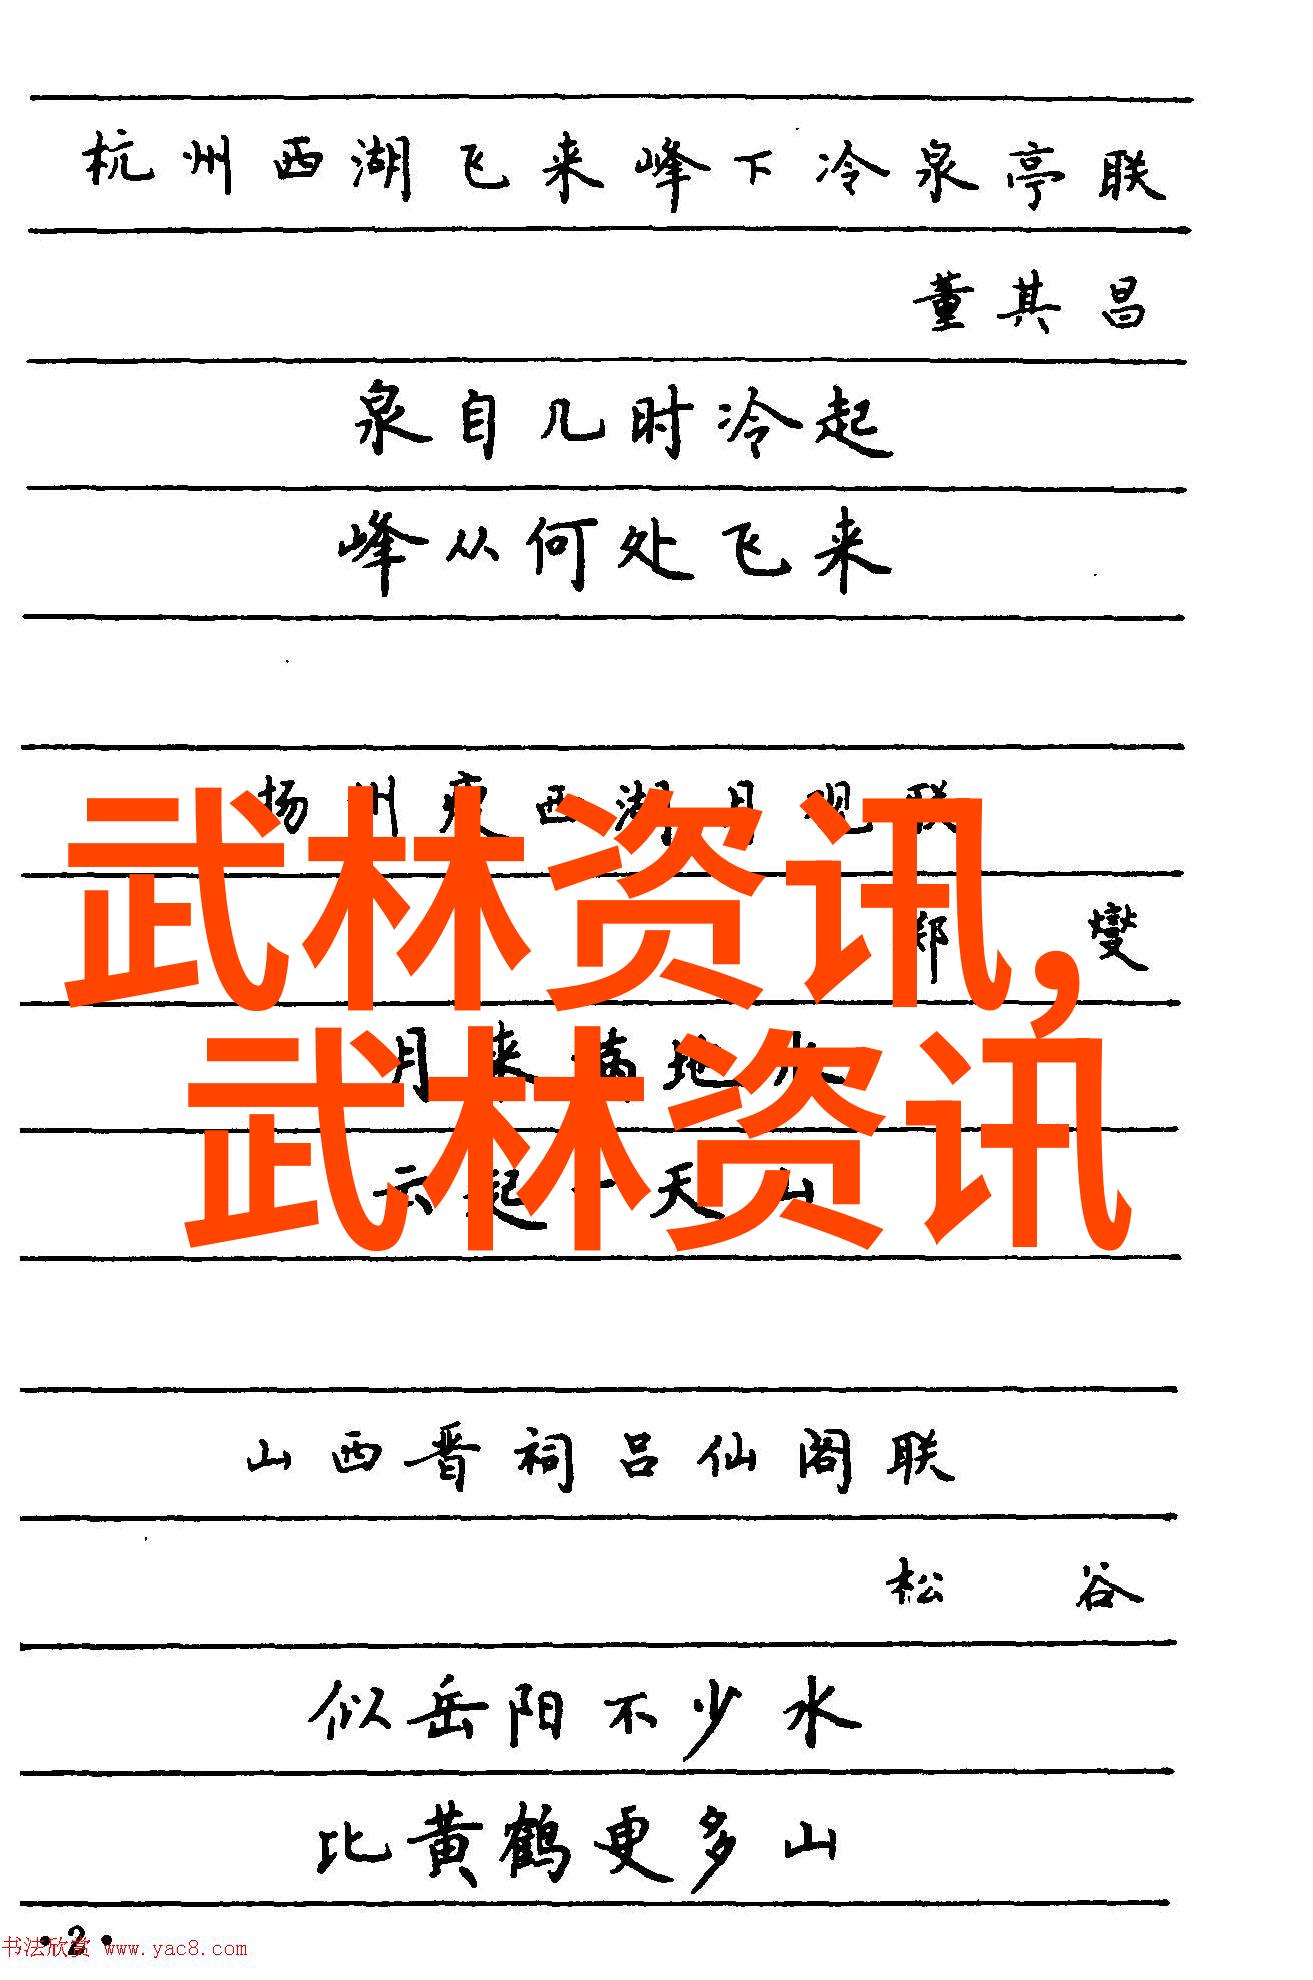 杭州西湖飞来峰下冷泉亭联
董其昌
泉自几时冷起
峰从何处飞来
扬州瘦西湖月观联
武林资讯,
郑燮
月来满地水
武林资讯
云起一天山
山西晋祠吕仙阁联
松谷
似岳阳不少水
比黄鹤更多山
·2·
书法欣赏 www.yac8.com